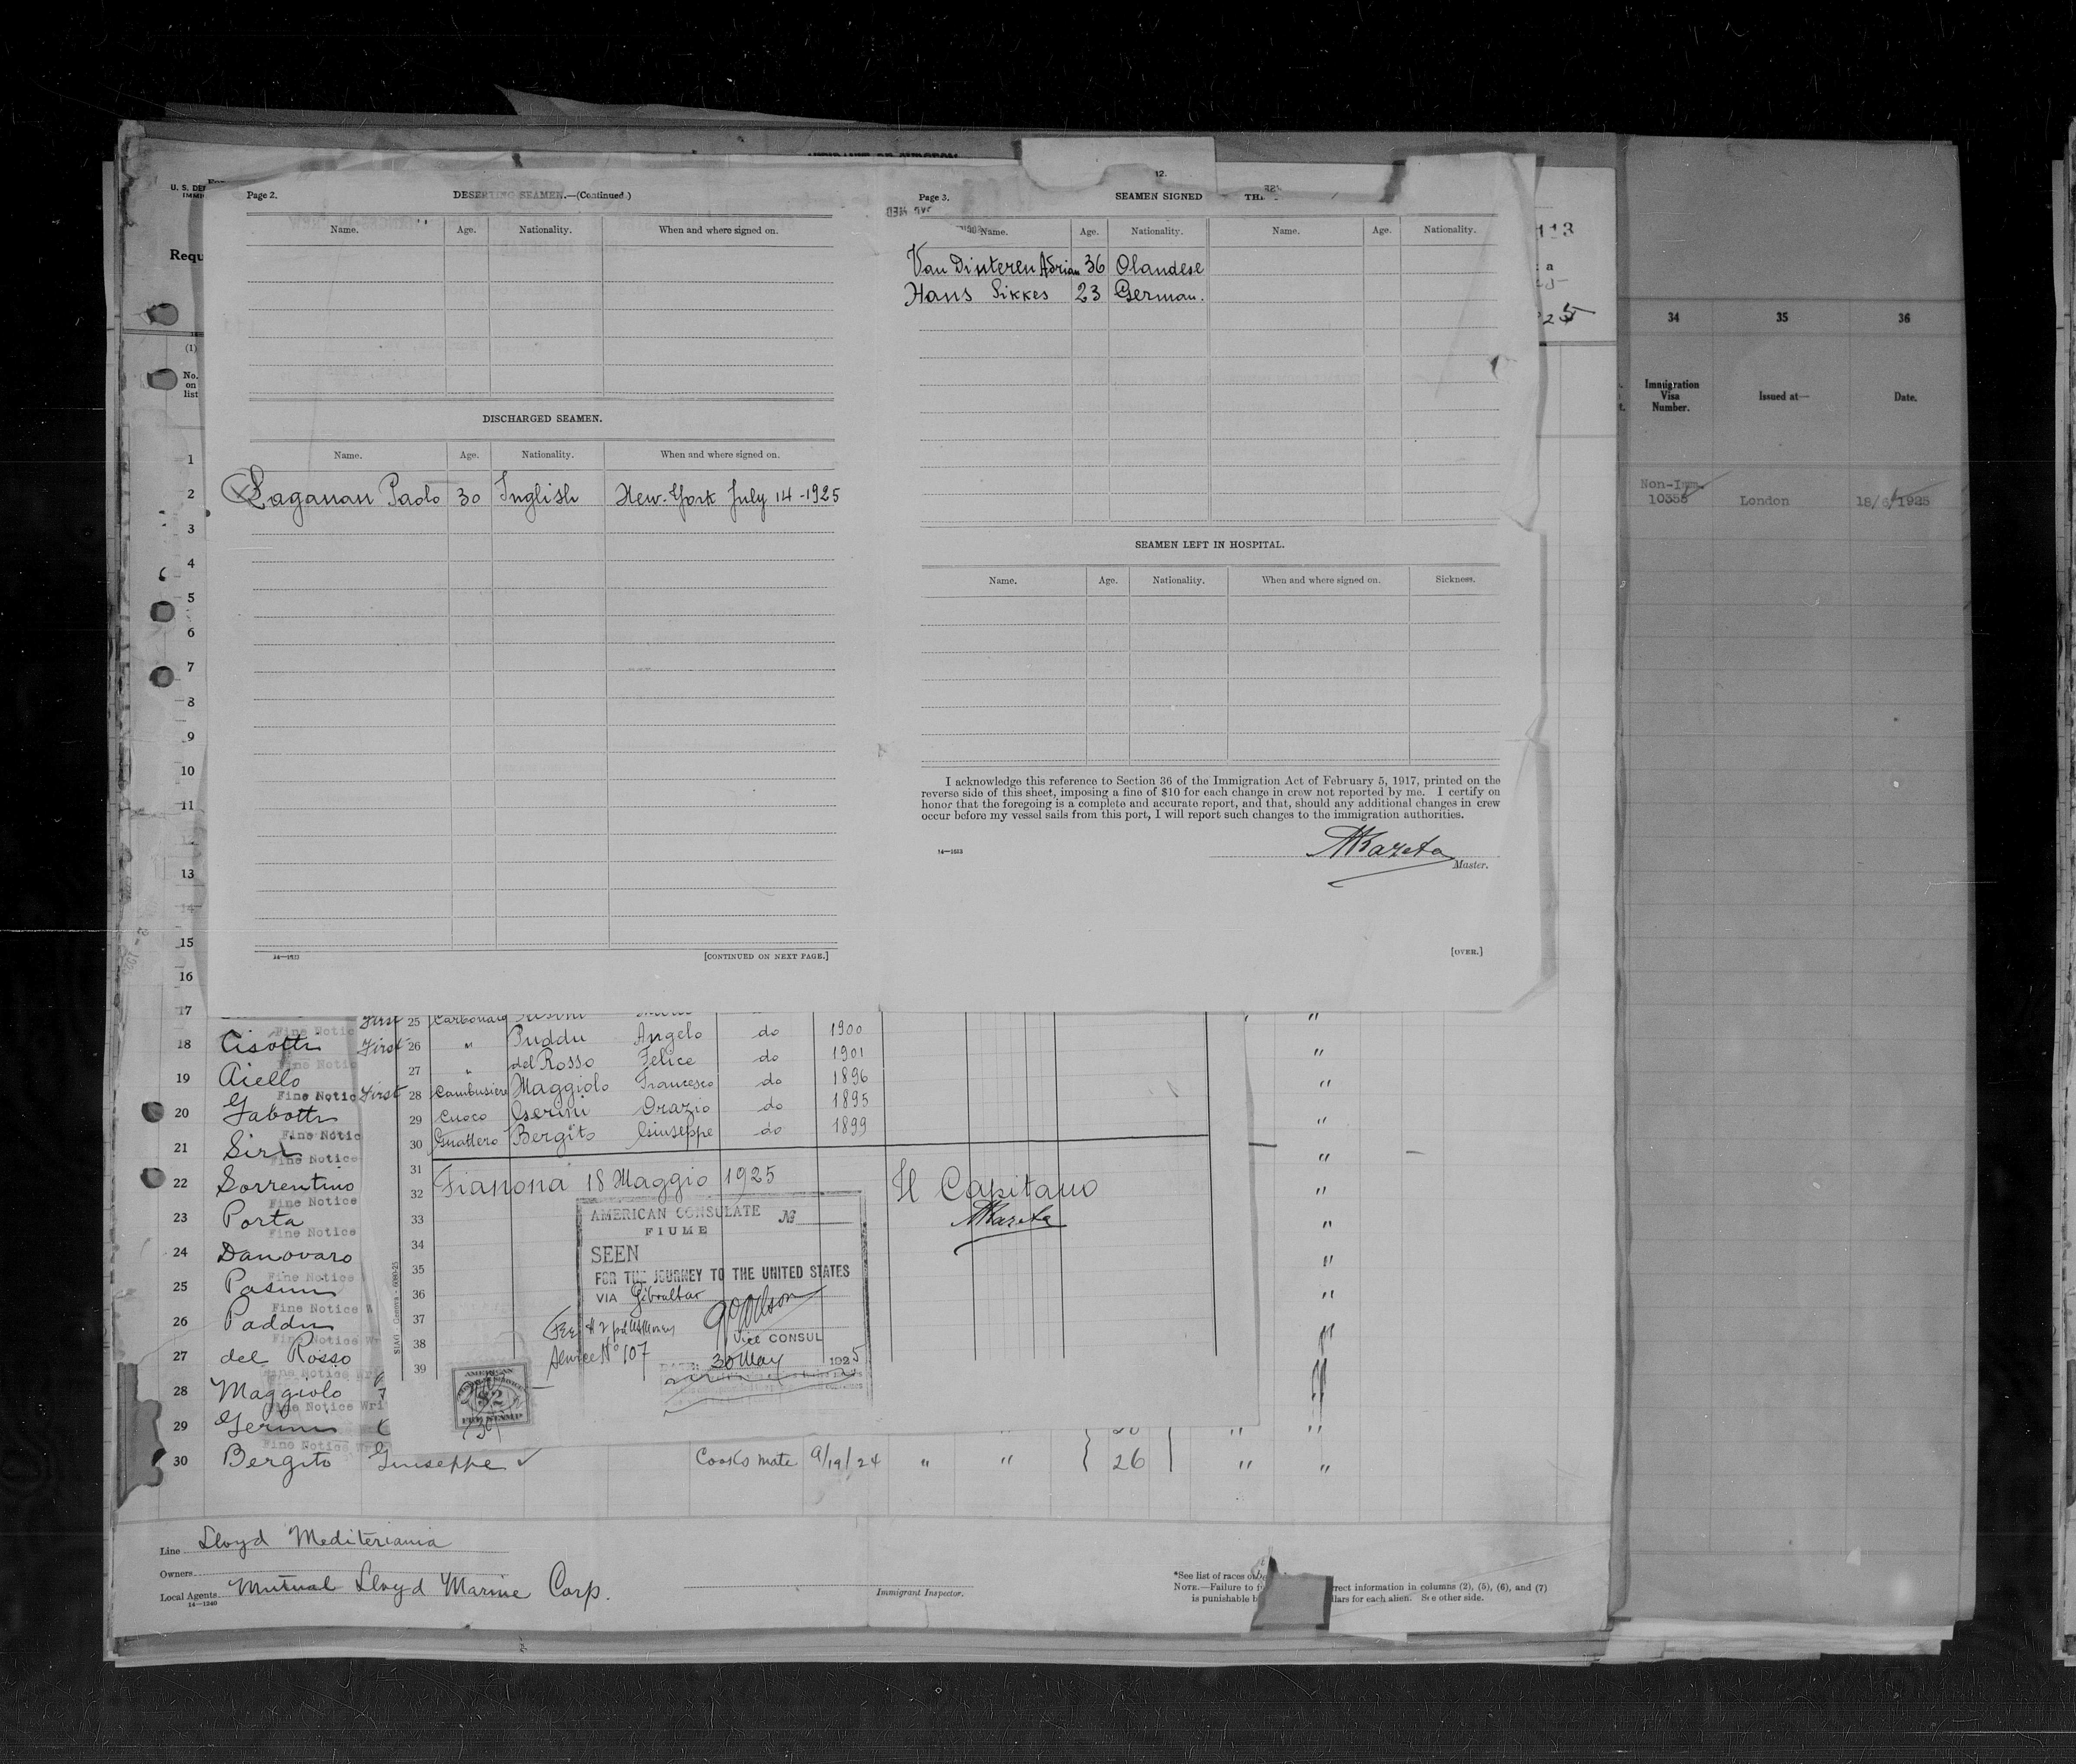 U. S. DEP
Requ
(1)
No.
on
list
Page 2.
DESERTING SEAMEN.—(Continued.)
Name. Age. Nationality. When and where signed on.
DISCHARGED SEAMEN.
Name. Age. Nationality. When and where signed on.
Laganan Paolo 30 Inglish New-York July 14-1925
14—1513
[CONTINUED ON NEXT PAGE.]
12.
Page 3.
SEAMEN SIGNED
Name. Age. Nationality. Name. Age. Nationality.
Van Dinteren Adrian 36 Olandese
Hans Sikkes 23 German.
SEAMEN LEFT IN HOSPITAL.
Name. Age. Nationality. When and where signed on. Sickness.
I acknowledge this reference to Section 36 of the Immigration Act of February 5, 1917, printed on the
reverse side of this sheet, imposing a fine of $10 for each change in crew not reported by me. I certify on
honor that the foregoing is a complete and accurate report, and that, should any additional changes in crew
occur before my vessel sails from this port, I will report such changes to the immigration authorities.
14—1513
Master.
[OVER.]
113
34 35 36
Immigration Visa Number. Issued at— Date.
Non-Imm.
10358 London 18/6/1925
1
2
3
4
5
6
7
8
9
10
11
13
15
16
17
18 Cisotti First
19 Aiello
20 Gabotti
21 Siri
22 Sorrentino
23 Porta
24 Danovaro
25 Pasini
26 Paddu
27 del Rosso
28 Maggiolo
29 Gerini
30 Bergito Giuseppe Cooks mate 9/19/24 " " 26 " "
Fine Notice
First 25 Carbonaio
26 " Puddu Angelo do 1900
27 " del Rosso Felice do 1901
28 Cambusiere Maggiolo Francesco do 1896
29 Cuoco Gerini Orazio do 1895
30 Guattero Bergito Giuseppe do 1899
31
32 Fianona 18 Maggio 1925 Il Capitano
33
34
35
36
37
38
39
AMERICAN CONSULATE №
FIUME
SEEN
FOR THE JOURNEY TO THE UNITED STATES
VIA Gibraltar
VICE CONSUL
Service No 107
DATE: 30 May 1925
AMERICAN
$2
FEE STAMP
Line Lloyd Mediteriania
Owners
Local Agents Mutual Lloyd Marine Corp.
14—1240
Immigrant Inspector.
*See list of races o
NOTE.—Failure to f rrect information in columns (2), (5), (6), and (7)
is punishable b llars for each alien. See other side.